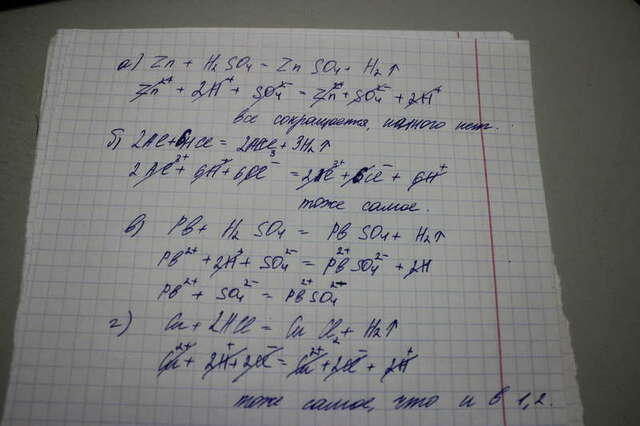 а) Zn + H₂SO₄ = ZnSO₄ + H₂↑
Zn²⁺ + 2H⁺ + SO₄²⁻ = Zn²⁺ + SO₄²⁻ + 2H⁺
все сокращается, полного нет.
б) 2Al + 6HCl = 2AlCl₃ + 3H₂↑
2Al³⁺ + 6H⁺ + 6Cl⁻ = 2Al³⁺ + 6Cl⁻ + 6H⁺
тоже самое.
в) Pb + H₂SO₄ = PbSO₄ + H₂↑
Pb²⁺ + 2H⁺ + SO₄²⁻ = Pb²⁺SO₄²⁻ + 2H
Pb²⁺ + SO₄²⁻ = Pb²⁺SO₄²⁻
г) Cu + 2HCl = CuCl₂ + H₂↑
Cu²⁺ + 2H⁺ + 2Cl⁻ = Cu²⁺ + 2Cl⁻ + 2H⁺
тоже самое, что и в 1,2.